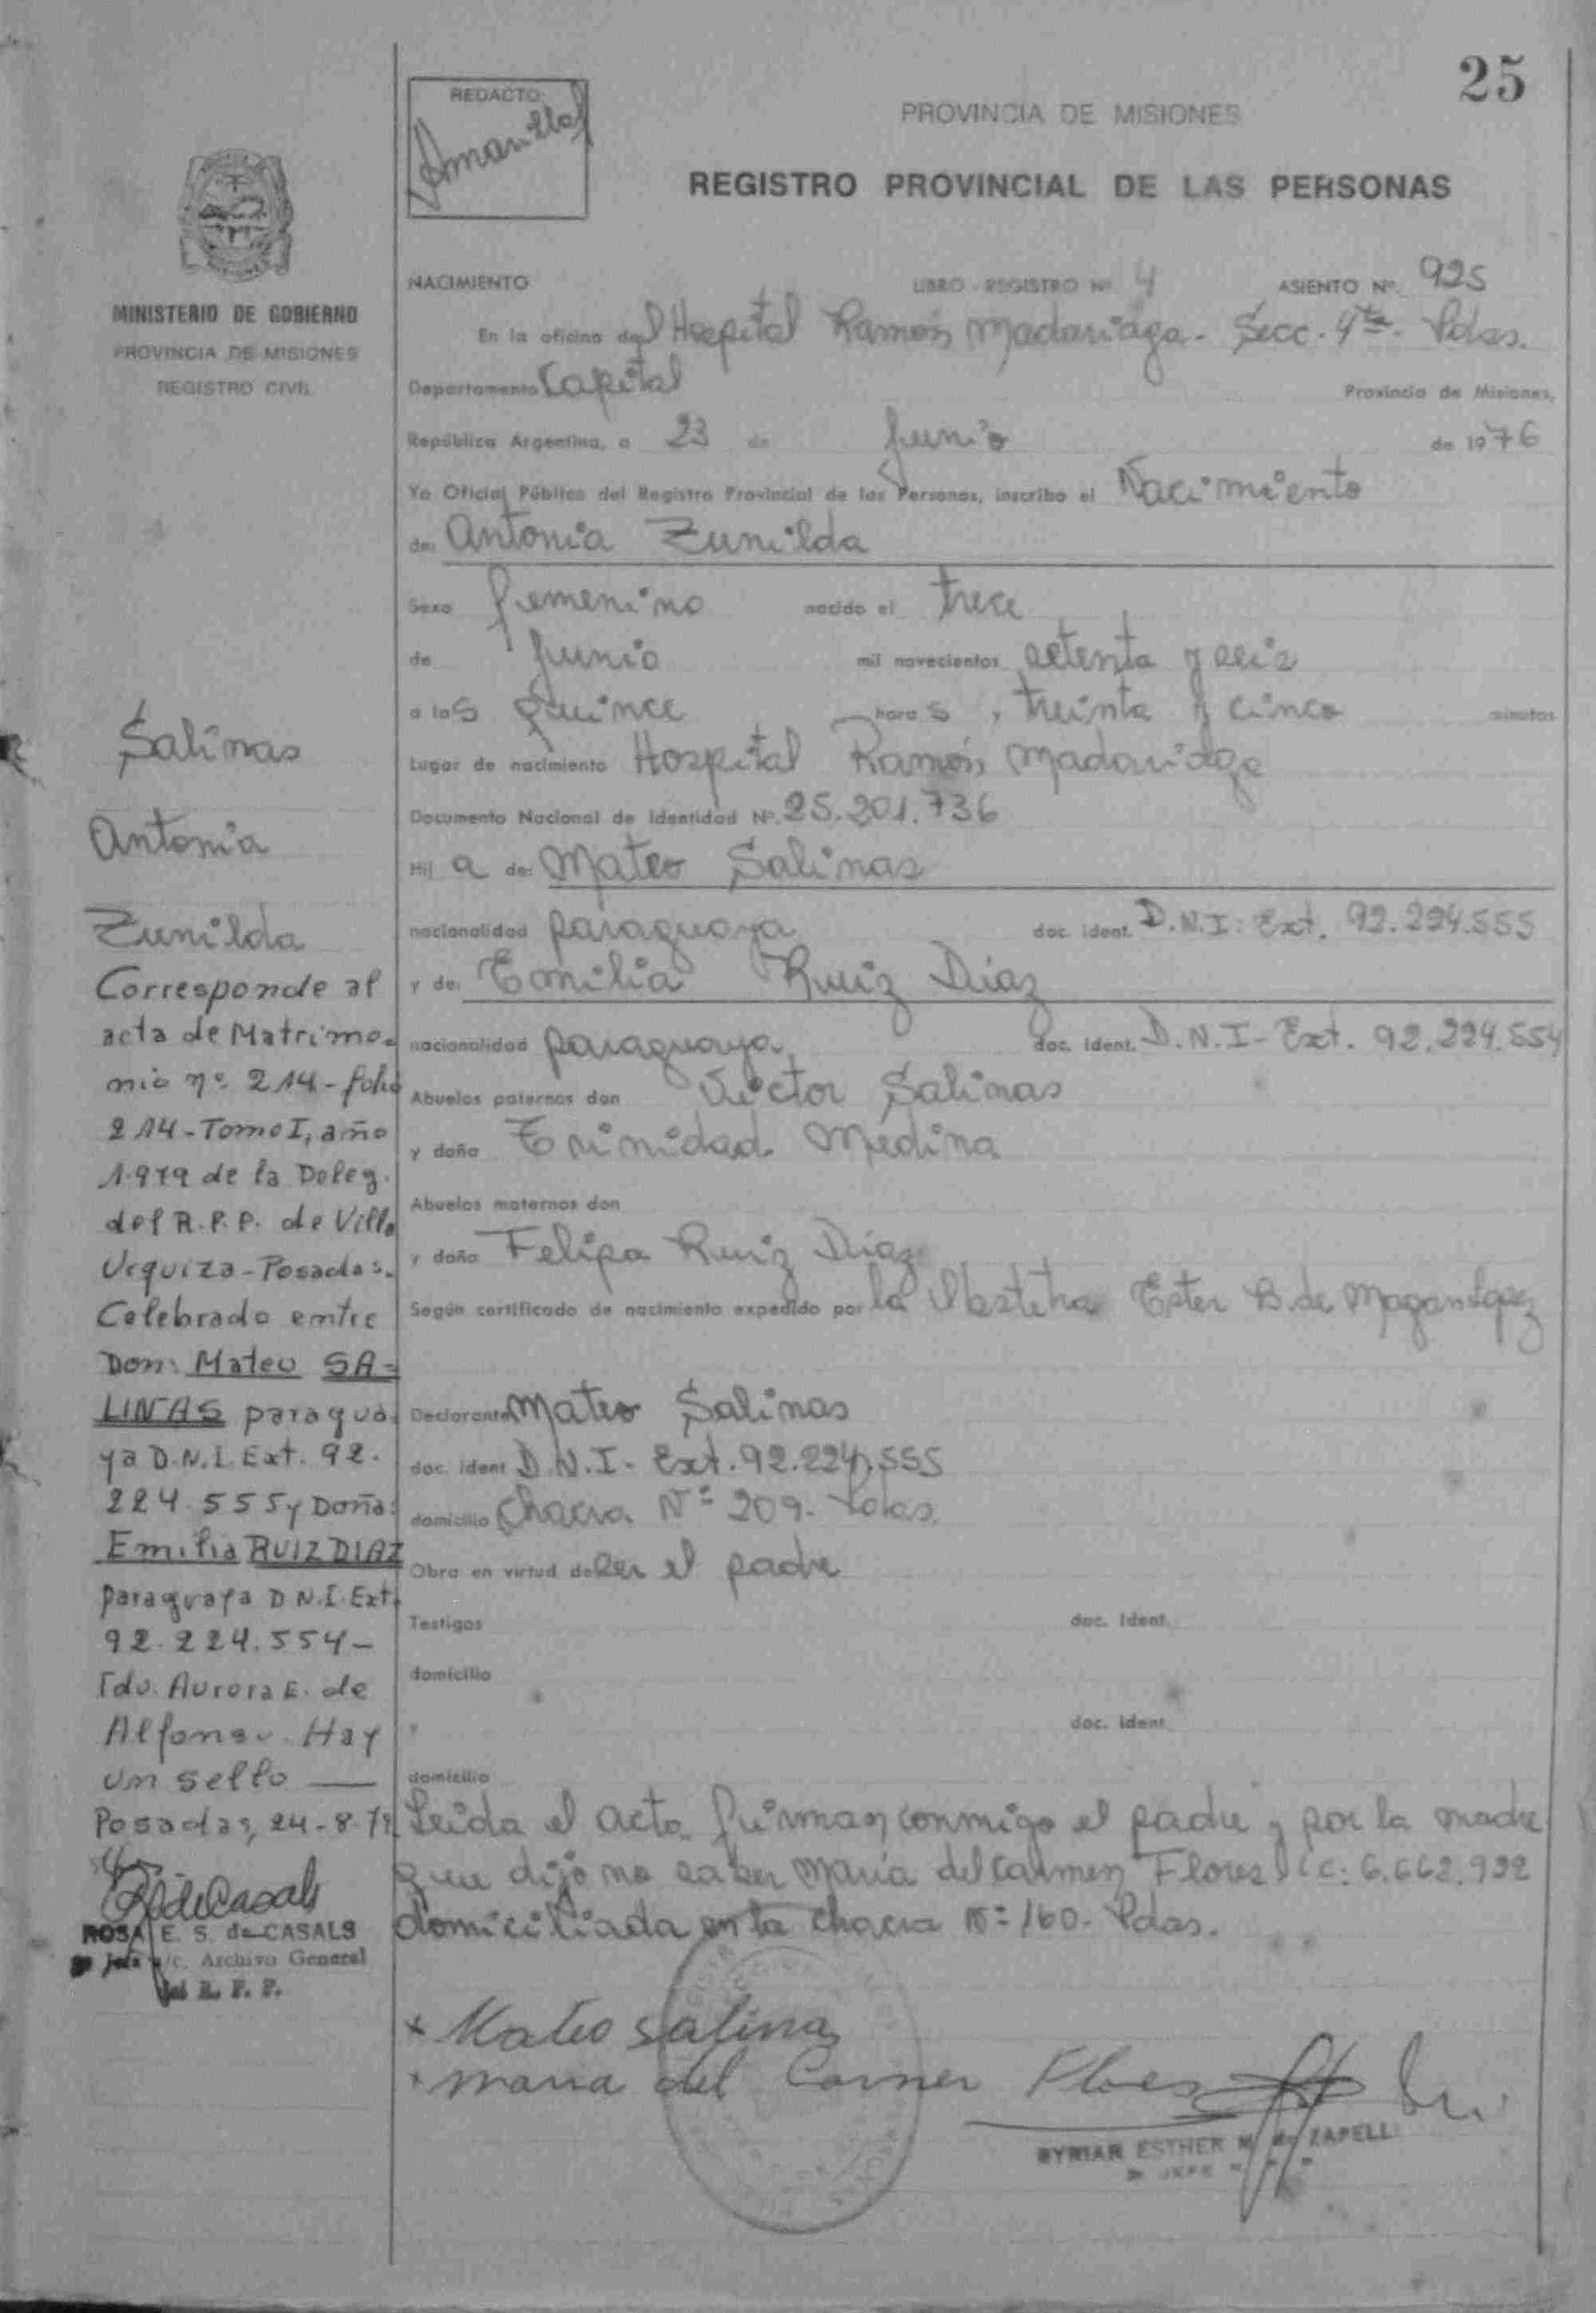 25
REDACTO:
PROVINCIA DE MISIONES
REGISTRO PROVINCIAL DE LAS PERSONAS
MINISTERIO DE GOBIERNO
PROVINCIA DE MISIONES
REGISTRO CIVIL
Salinas
Antonia
Zunilda
Corresponde al
acta de Matrimo-
nio nº 214 - folio
214 - Tomo I, año
1.979 de la Deleg.
del R.P.P. de Villa
Urquiza - Posadas.
Celebrado entre
Don: Mateo SA=
LINAS paragua
ya D.N.I. Ext. 92.
224.555 y Doña:
Emilia RUIZ DIAZ
paraguaya D.N.I. Ext.
92.224.554 -
Fdo. Aurora E. de
Alfonso. Hay
un sello —
Posadas, 24-8-79
ROSA E. S. de CASALS
Jefa a/c. Archivo General
del R. P. P.
NACIMIENTO LIBRO - REGISTRO Nº 4 ASIENTO Nº 925
En la oficina del Hospital Ramón Madariaga - Secc. 4ta. Pdas.
Departamento Capital Provincia de Misiones,
República Argentina, a 23 de Junio de 1976
Yo Oficial Público del Registro Provincial de las Personas, inscribo el Nacimiento
de: Antonia Zunilda
Sexo femenino nacido el trece
de Junio mil novecientos setenta y seis
a las quince horas, treinta y cinco minutos
Lugar de nacimiento Hospital Ramón Madariaga
Documento Nacional de Identidad Nº 25.201.736
Hij a de: Mateo Salinas
nacionalidad paraguaya doc. ident. D.N.I: Ext. 92.224.555
y de: Emilia Ruiz Diaz
nacionalidad paraguaya doc. ident. D.N.I - Ext. 92.224.554
Abuelos paternos don Victor Salinas
y doña Trinidad Medina
Abuelos maternos don
y doña Felipa Ruiz Diaz
Según certificado de nacimiento expedido por la Obstetra Ester B. de
Declarante Mateo Salinas
doc. ident D.N.I - Ext. 92.224.555
domicilio Chacra Nº 209 - Pdas.
Obra en virtud de ser el padre
Testigos doc. Ident.
domicilio
y doc. ident
domicilio
Leida el acta firman conmigo el padre y por la madre
que dijo no saber Maria del Carmen Flores L.C: 6.662.932
domiciliada en la chacra Nº 160 - Pdas.
x Mateo Salinas
x Maria del Carmen Flores
ESTHER ZAPELLI
JEFE